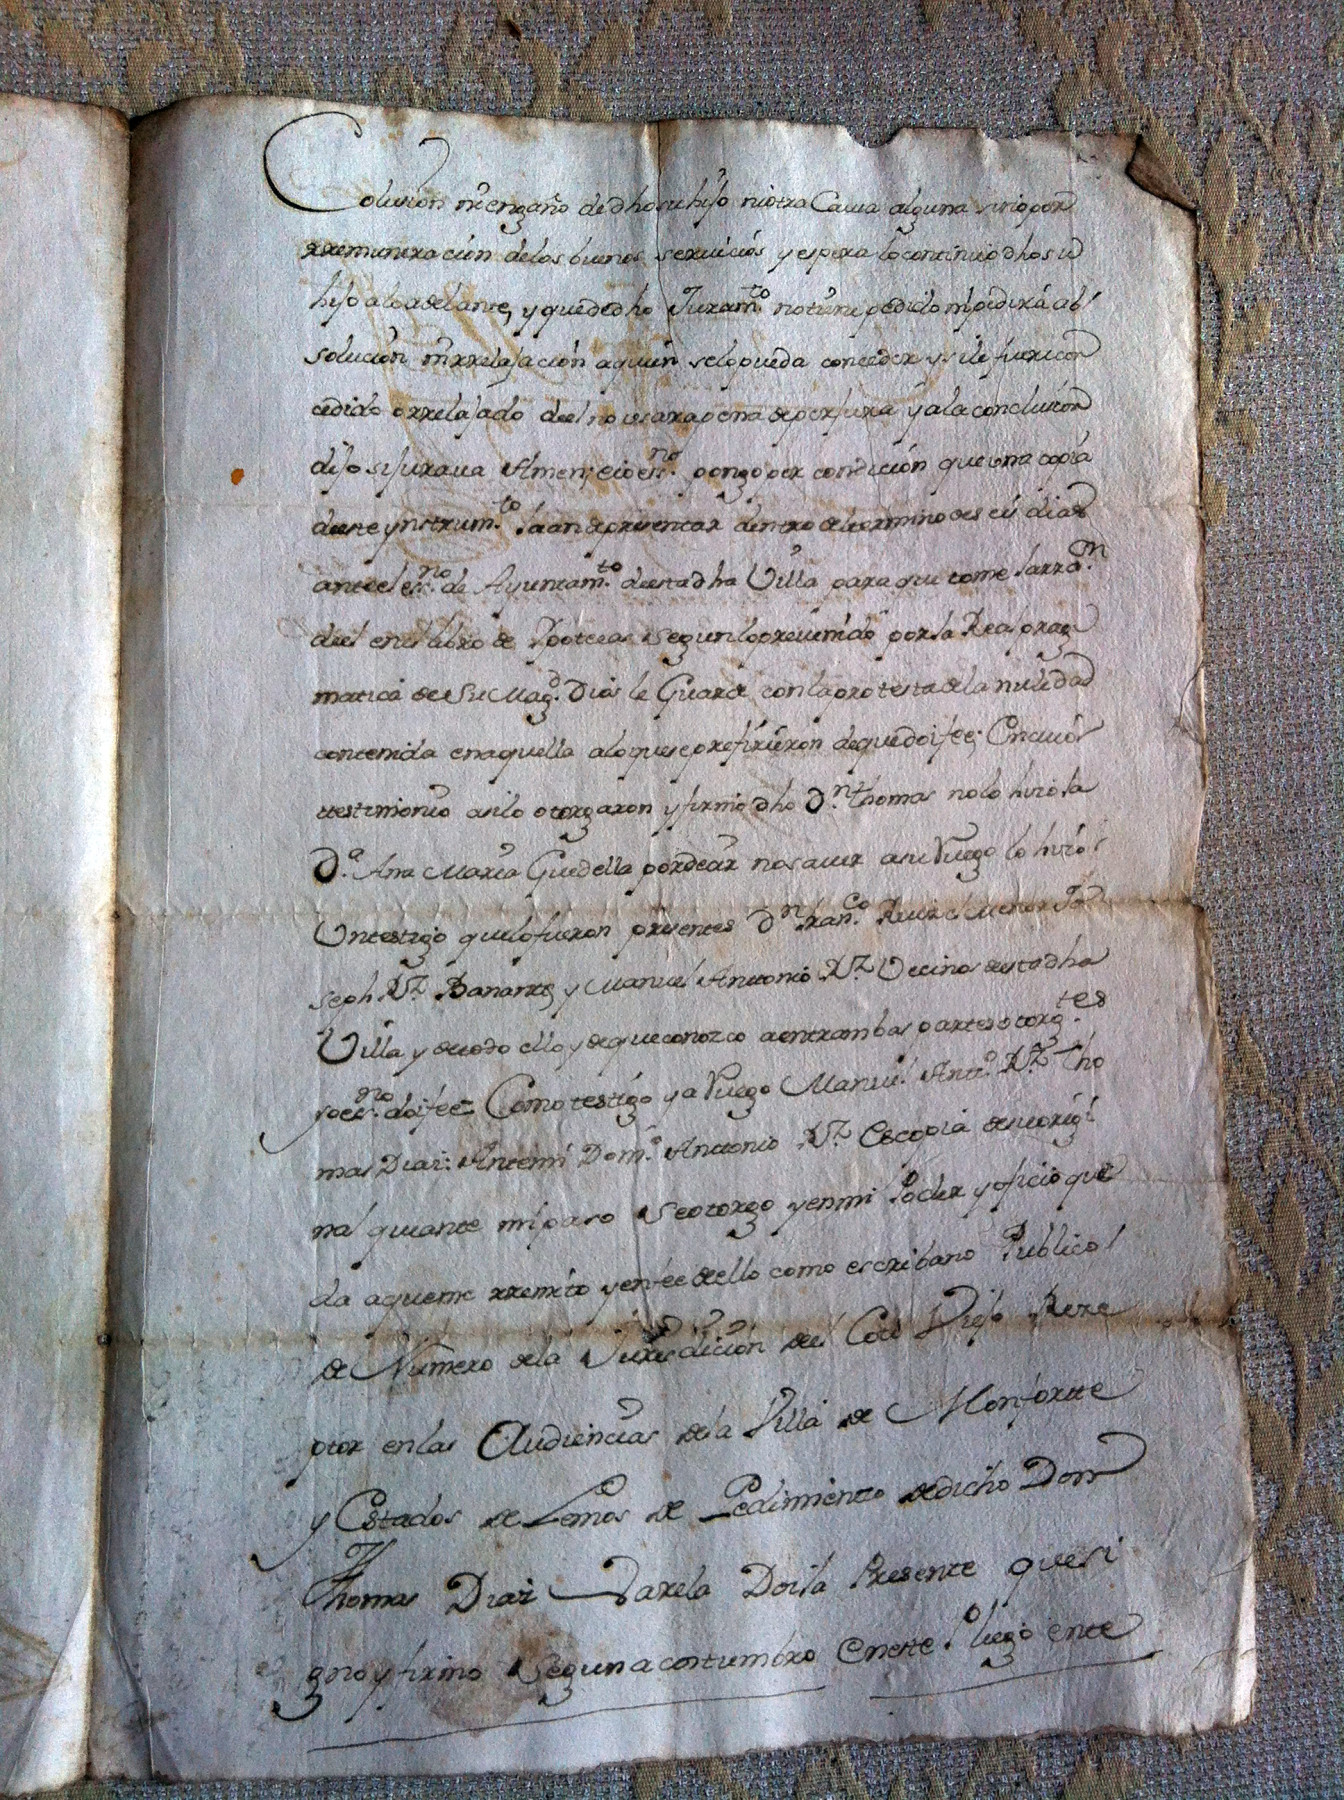 Colusion ni engaño de dho su hijo ni otra Causa alguna sino por
rremuneracion de los buenos servicios y espera lo continuo dho su
hijo aloadelante, y que de dho Juramto no tiene pedido ni pedirá ab
solucion ni rrelajacion a quien se lo pueda conceder y si le fuere con
cedido o rrelajado del no usara pena de perjura y a la conclusion
dijo si jurava Amen, eio esno pongo por condicion que una copia
deste ynstrumto se a an de presentar dentro del termino de seis dias
ante el esno de Ayuntamto de esta dha Villa para que tome la rrazn
del en el libro de Ipotecas segun lo prevenido por la Real prag
matica de Su Magd Dios le Guarde con la protesta de la nulidad
contenida en aquella a lo que se prefirieron de que doi fee; En cuio
testimonio asi lo otorgaron y firmo dho Dn Thomas no lo hizo la
Da Ana Maria Guedella por decir no saver a su Ruego lo hizo
Un testigo que lo fueron presentes Dn Franco Ruiz el Menor Jo
seph Rz Banante, y Manuel Antonio Rz Vecinos de esta dha
Villa y de todo ello y de que conozco a entrambas partes otorgtes
yo esno doi fee= Como testigo y a Ruego Manuel Anto Rz Tho
mas Diaz: Antemi Domo Antonio Rz Es copia de su origi
nal que ante mi paso se otorgo y en mi Poder y oficio que
da a que me rremito y en fee de ello como escribano Publico
de Numero de la Jurisdicion del Coto Viejo Rece
ptor en las Audiencias de la Villa de Monfortte
y Estados de Lemos de Pedimiento de dicho Don
Thomas Diaz Varela Doi la Presente que si
gno y firmo segun acostumbro En este Pliego ente